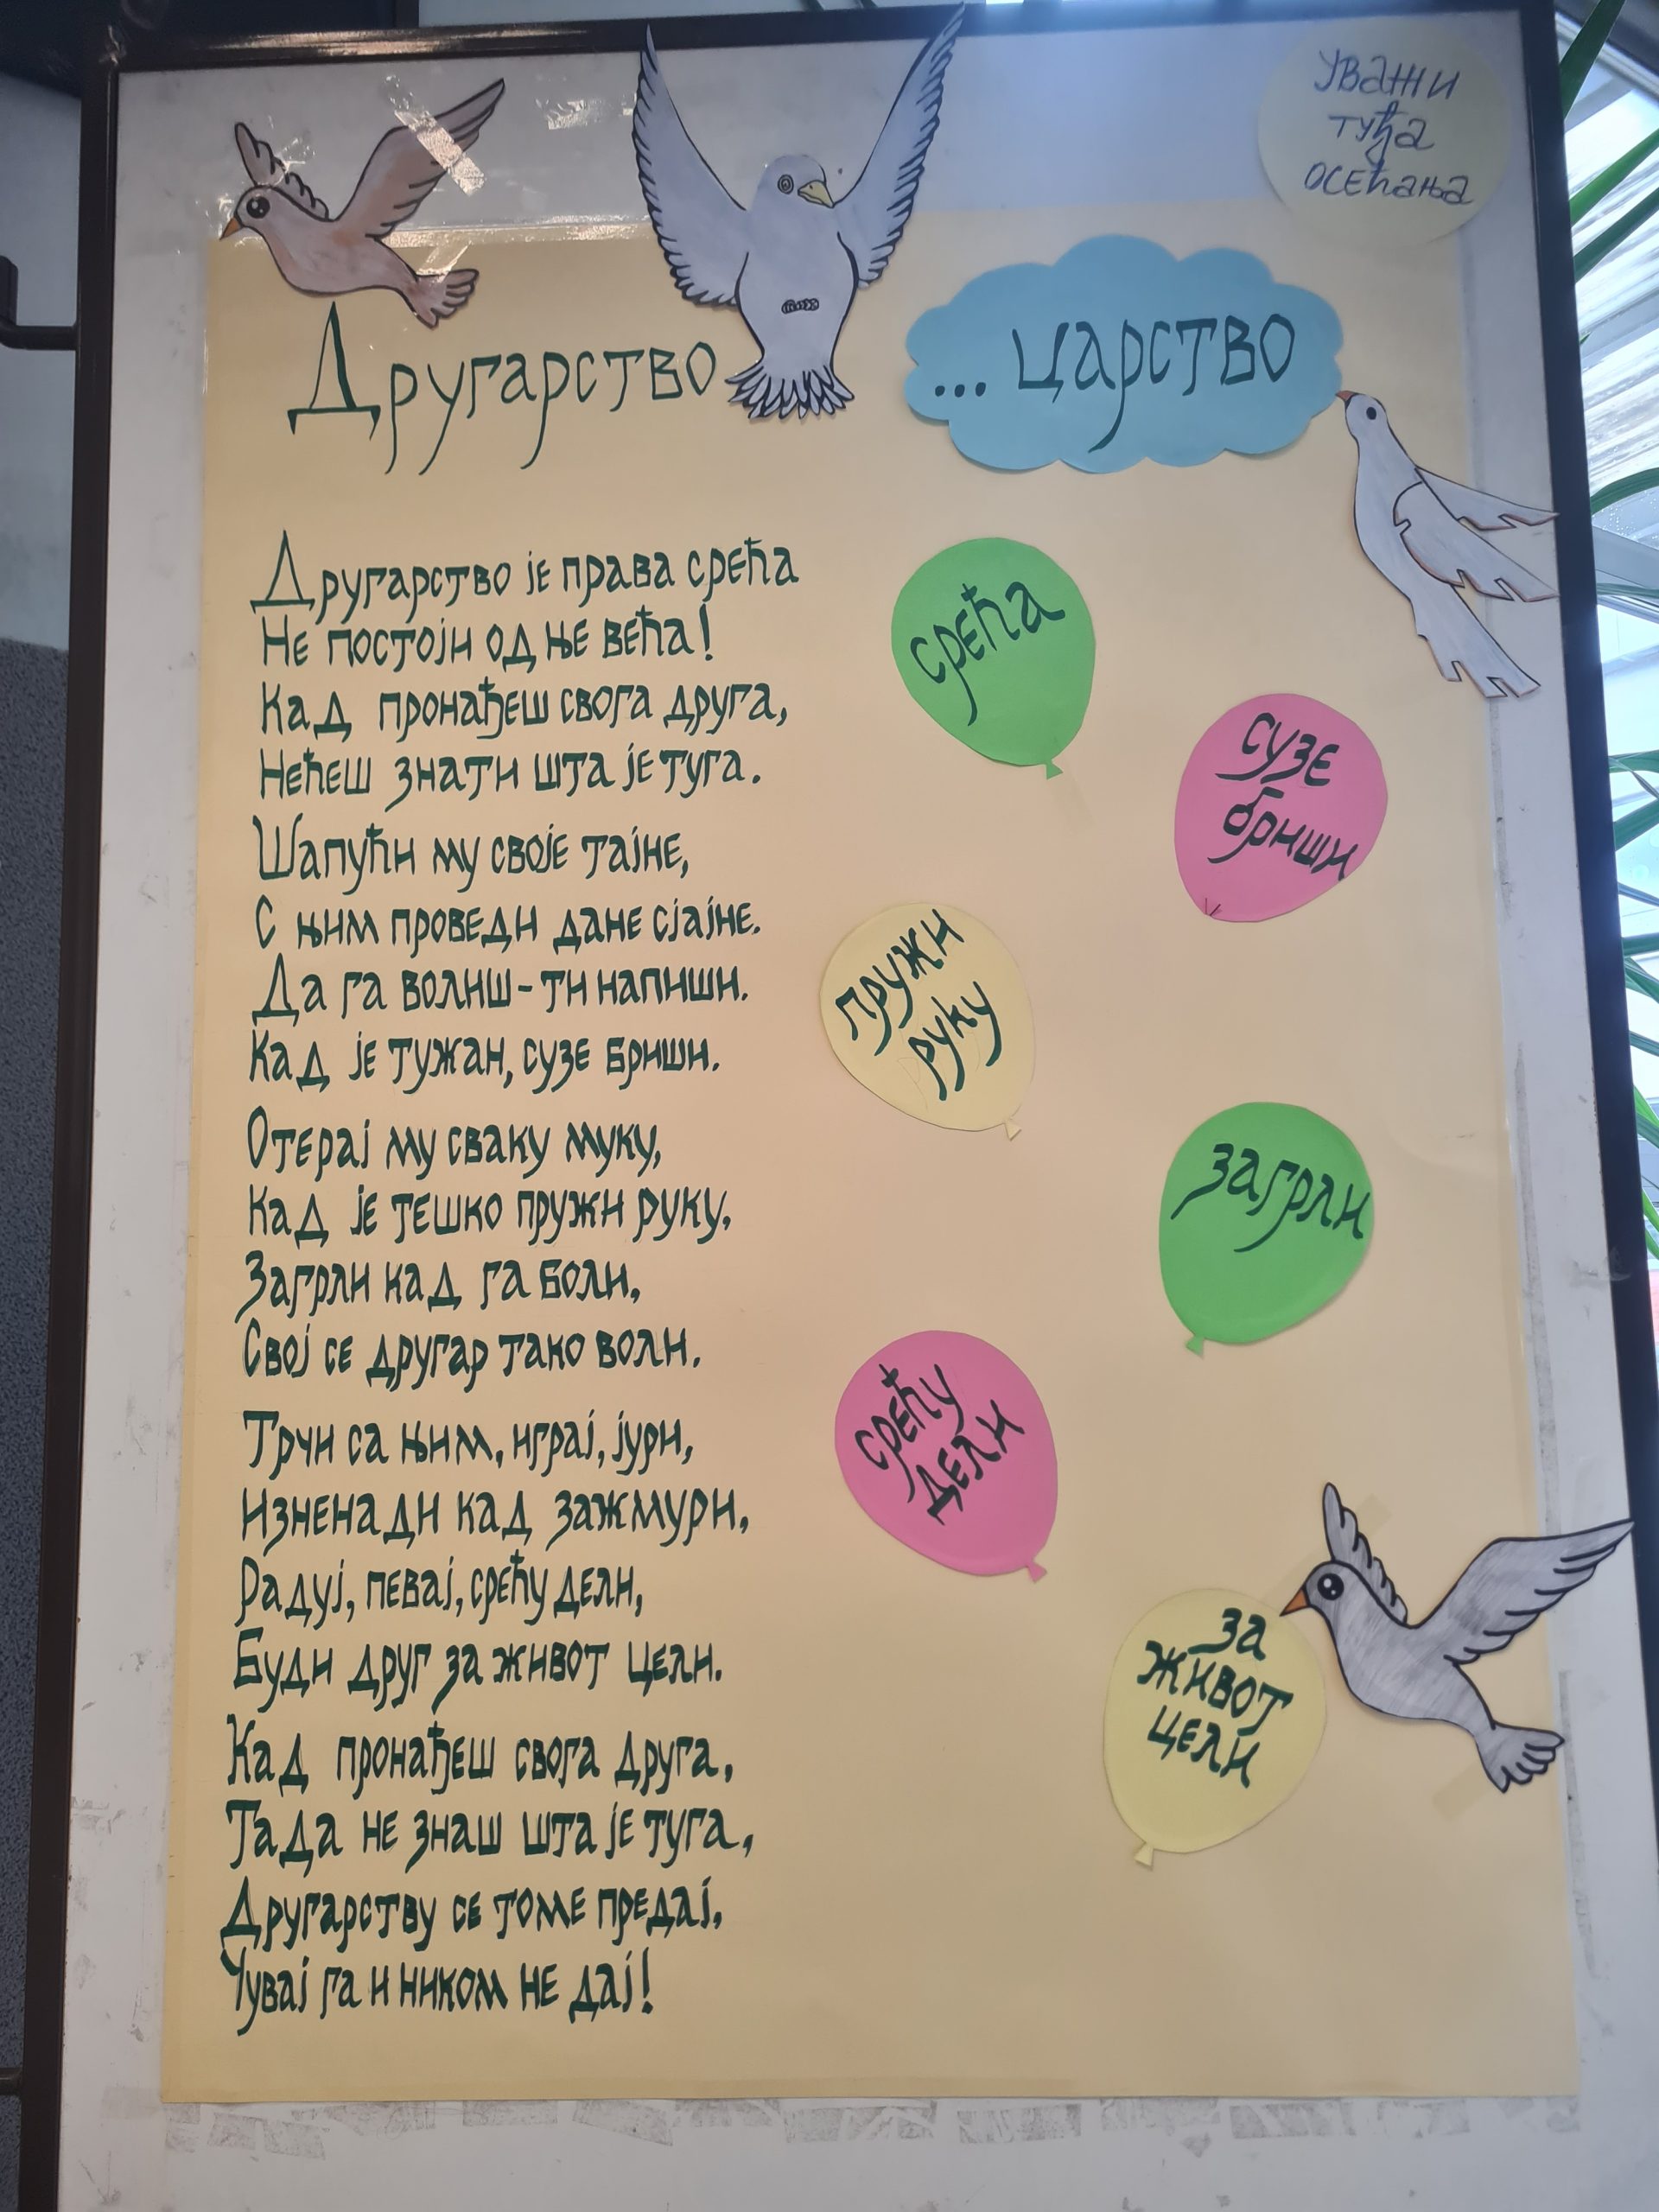 Уважи
туђа
осећања
Другарство
... царство
Другарство је права срећа
Не постоји од ње већа!
Кад пронађеш свога друга,
Нећеш знати шта је туга.
Шапући му своје тајне,
С њим проведи дане сјајне.
Да га волиш - ти напиши.
Кад је тужан, сузе бриши.
Отерај му сваку муку,
Кад је тешко пружи руку,
Загрли кад га боли,
Свој се другар тако воли.
Трчи са њим, играј, јури,
Изненади кад зажмури,
Радуј, певај, срећу дели,
Буди друг за живот цели.
Кад пронађеш свога друга,
Тада не знаш шта је туга,
Другарству се томе предај,
Чувај га и ником не дај!
срећа
сузе
бриши
пружи
руку
загрли
срећу
дели
за
живот
цели